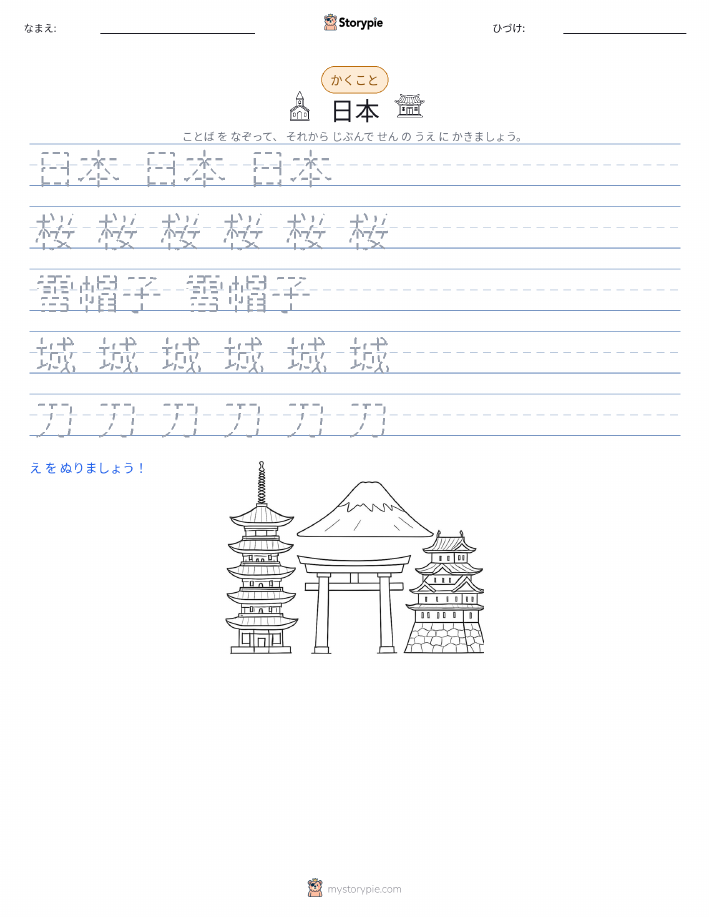 なまえ:
Storypie
ひづけ:
かくこと
日本
ことば を なぞって、 それから じぶんで せん の うえ に かきましょう。
日本 日本 日本
桜 桜 桜 桜 桜 桜
雪帽子 雪帽子
城 城 城 城 城 城
刀 刀 刀 刀 刀 刀
え を ぬりましょう！
mystorypie.com